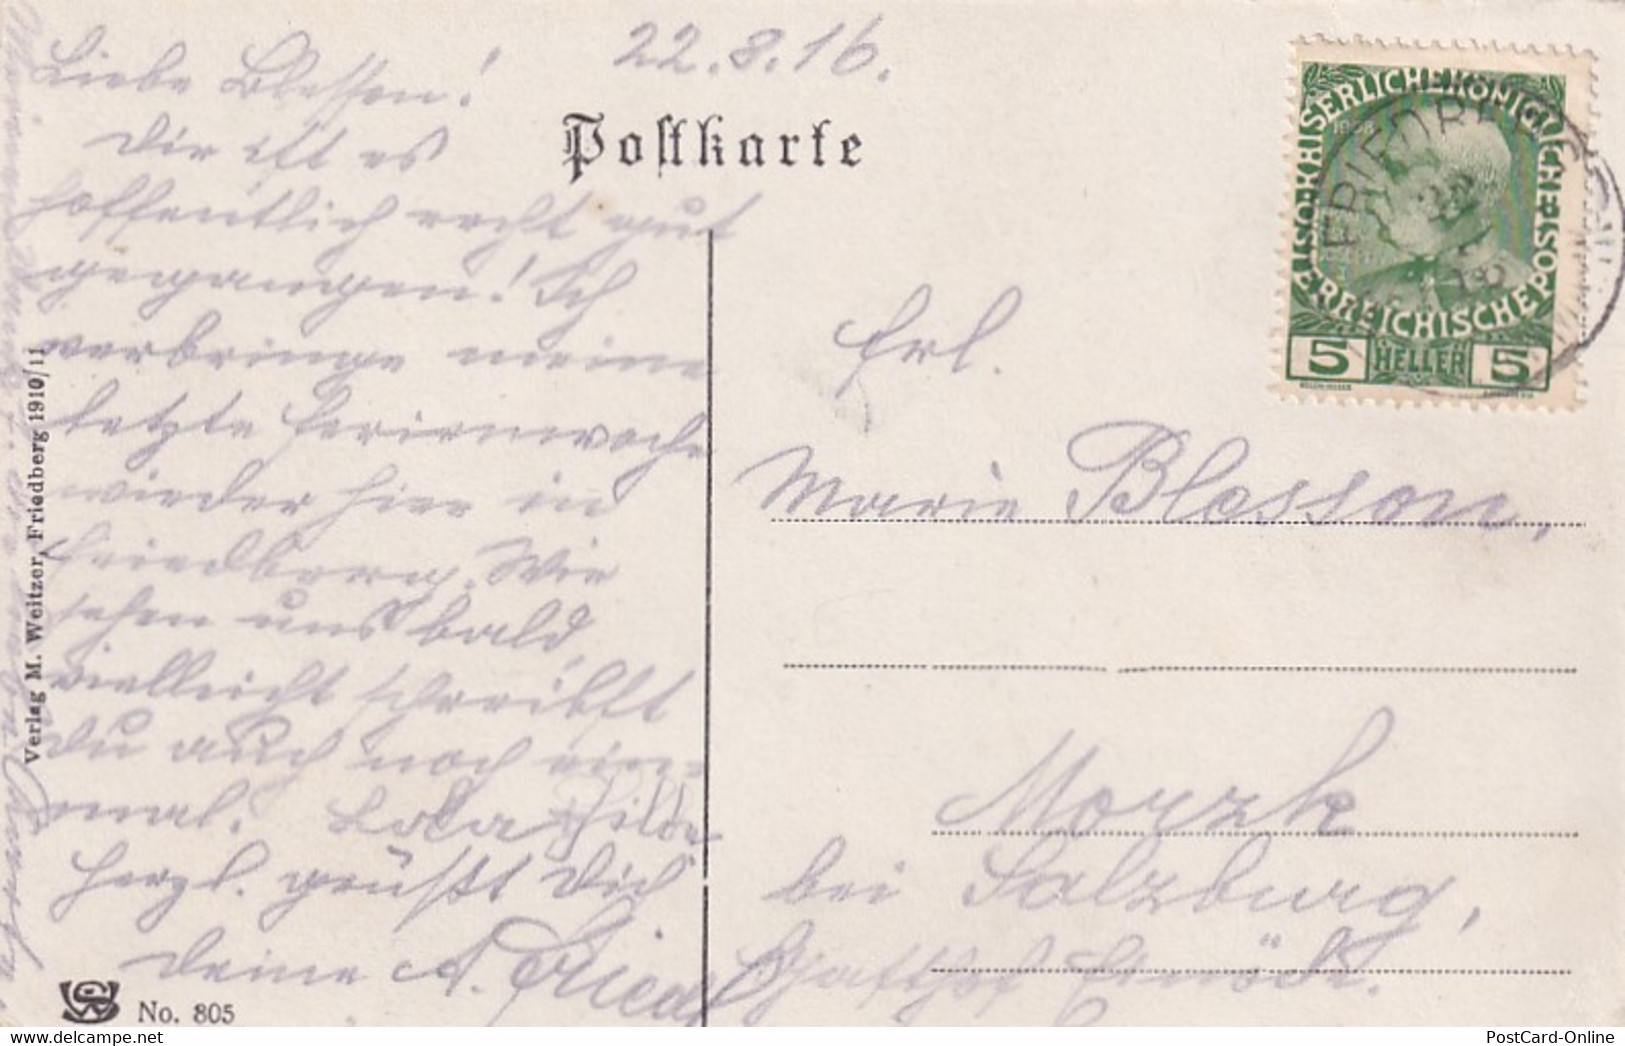 22.8.16.
Liebe Blesson!
Dir ist es
hoffentlich recht gut
gegangen! Ich
verbringe meine
letzte Ferienwoche
wieder hier in
Friedberg. Wie
sehen uns bald,
vielleicht schreibst
Du auch noch ein-
mal.
herzl. grüßt Dich
deine A. Fried
Postkarte
KAISERLICHE KÖNIGLICHE ÖSTERREICHISCHE POST
1908
5 HELLER 5
FRIEDBERG
22
Frl.
Marie Blesson,
Morzk
bei Salzburg,
Gasthof Einöde.
Verlag M. Weitzer, Friedberg 1910/11
No. 805
PostCard-Online